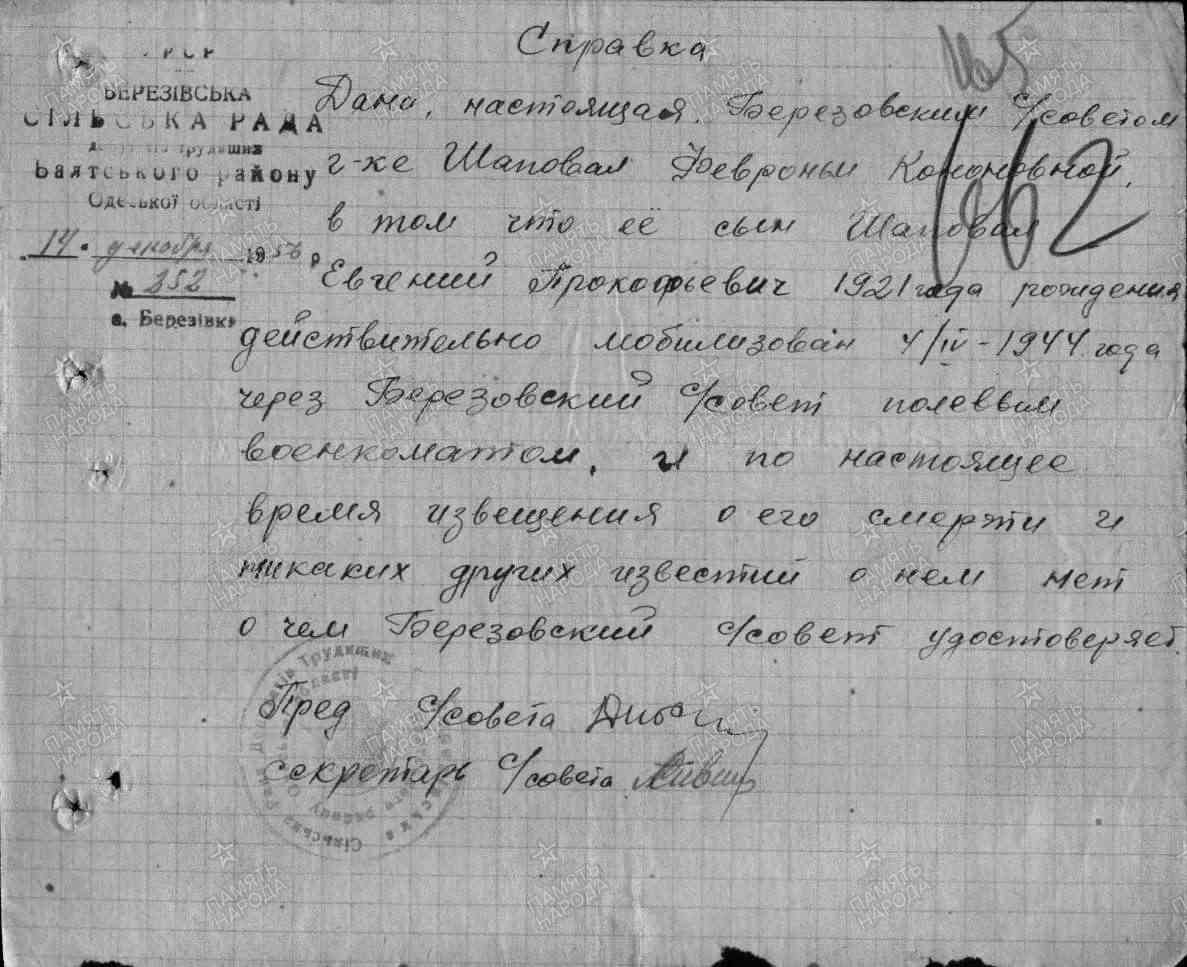 Справка
УРСР
БЕРЕЗІВСЬКА
СІЛЬСЬКА РАДА
депутатів трудящих
Балтського району
Одеської області
14 декабря 1956 р
№ 352
с. Березівка
165
162
Дана, настоящая, Березовским с/советом
г-ке Шаповал Февроньи Кононовной,
в том что её сын Шаповал
Евгений Прокофьевич 1921 года рождения
действительно мобилизован 4/IV-1944 года
через Березовский с/совет полеввым
военкоматом, и по настоящее
время извещения о его смерти и
никаких других известий о нем нет
о чем Березовский с/совет удостоверяет.
Пред с/совета
секретарь с/совета
ПАМЯТЬ НАРОДА